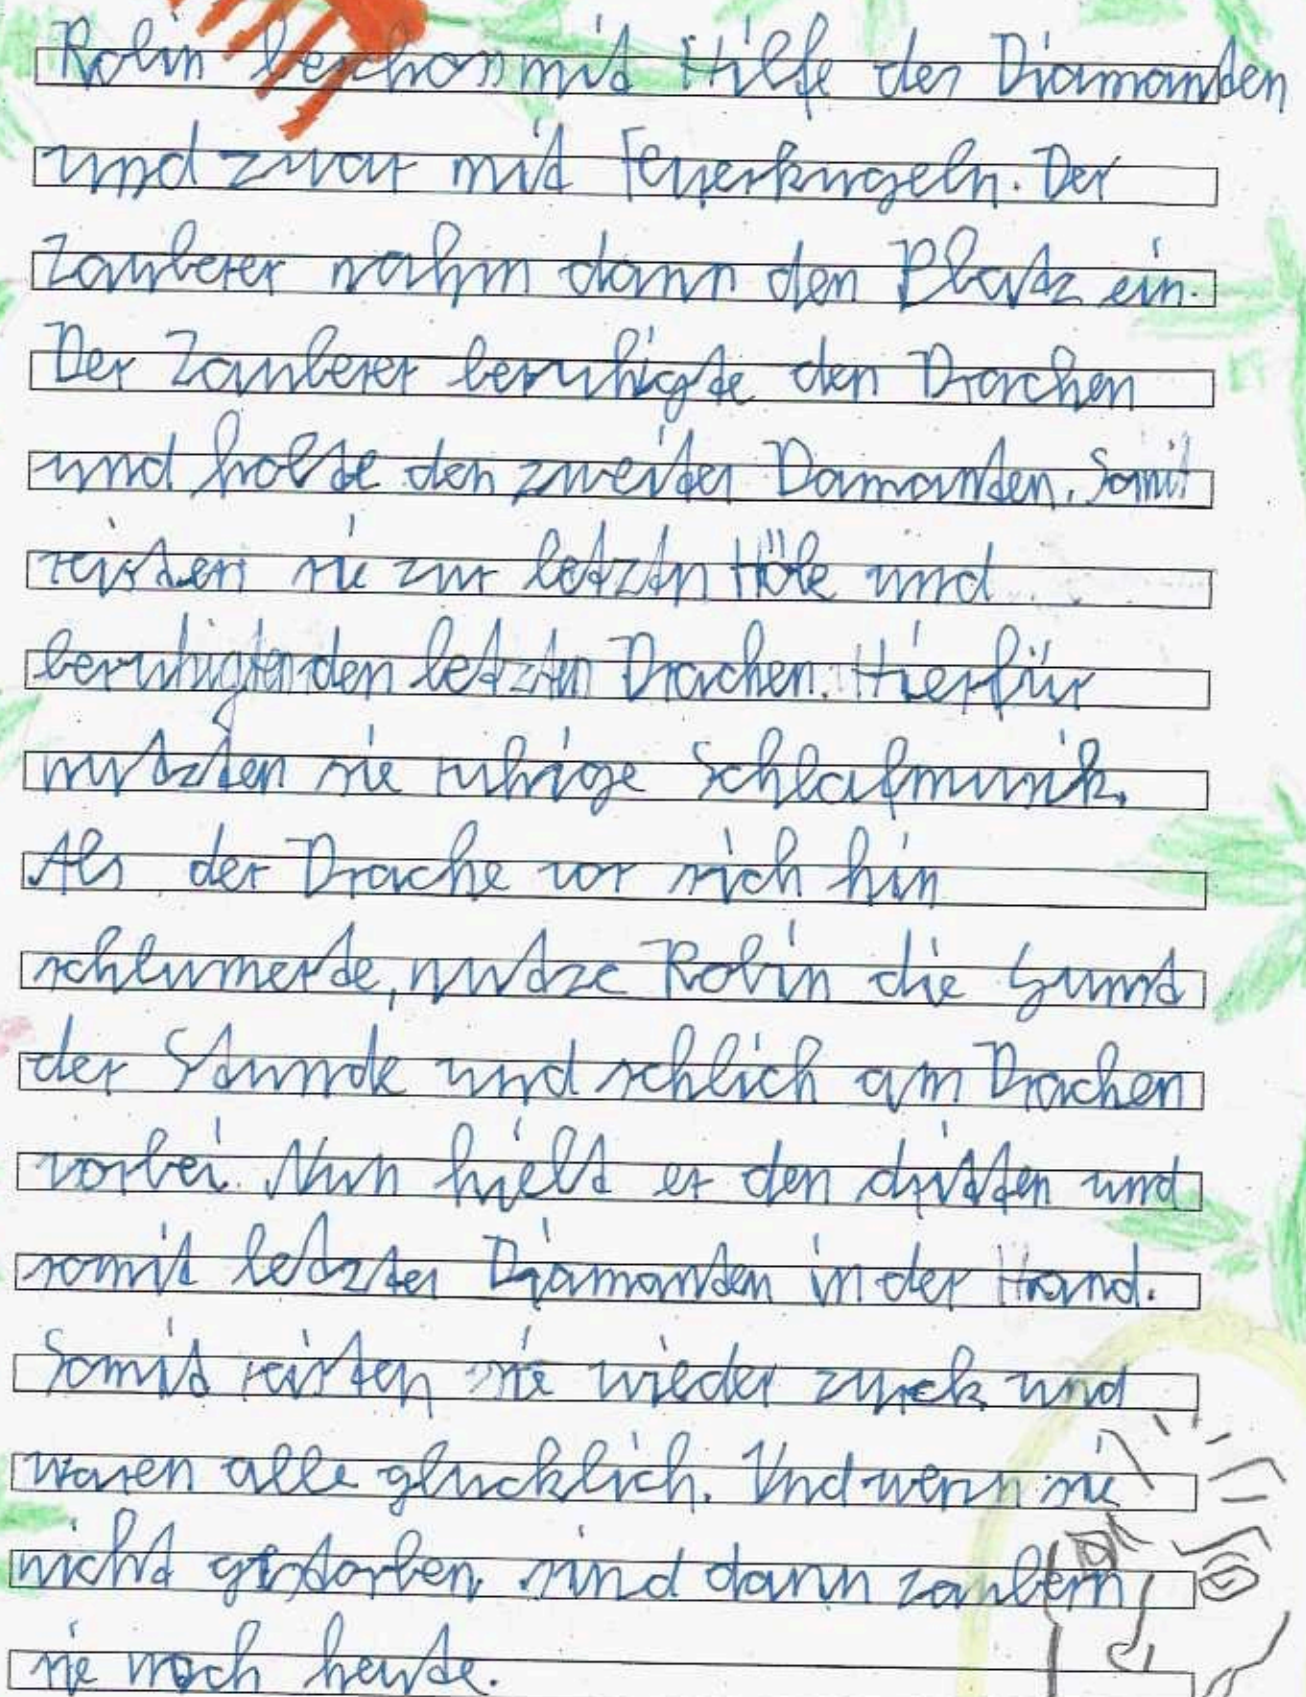 Robin bekam mit Hilfe der Diamanden
und zwar mit Feuerkugeln. Der
Zauberer nahm dann den Platz ein.
Der Zauberer beruhigte den Drachen
und holte den zweiten Damanten. Somit
reisten sie zur letztn Höle und
beruhigten den letztn Drachen. Hierfür
nutzten sie ruhige Schlafmusik.
Als der Drache vor sich hin
schlumerte, nutze Robin die Gunst
der Stunde und schlich am Drachen
vorbei. Nun hielt er den dritten und
somit letzten Diamanten in der Hand.
Somit reisten sie wieder zurck und
waren alle glucklich. Und wenn sie
nicht gestorben sind dann zaubern
sie noch heute.